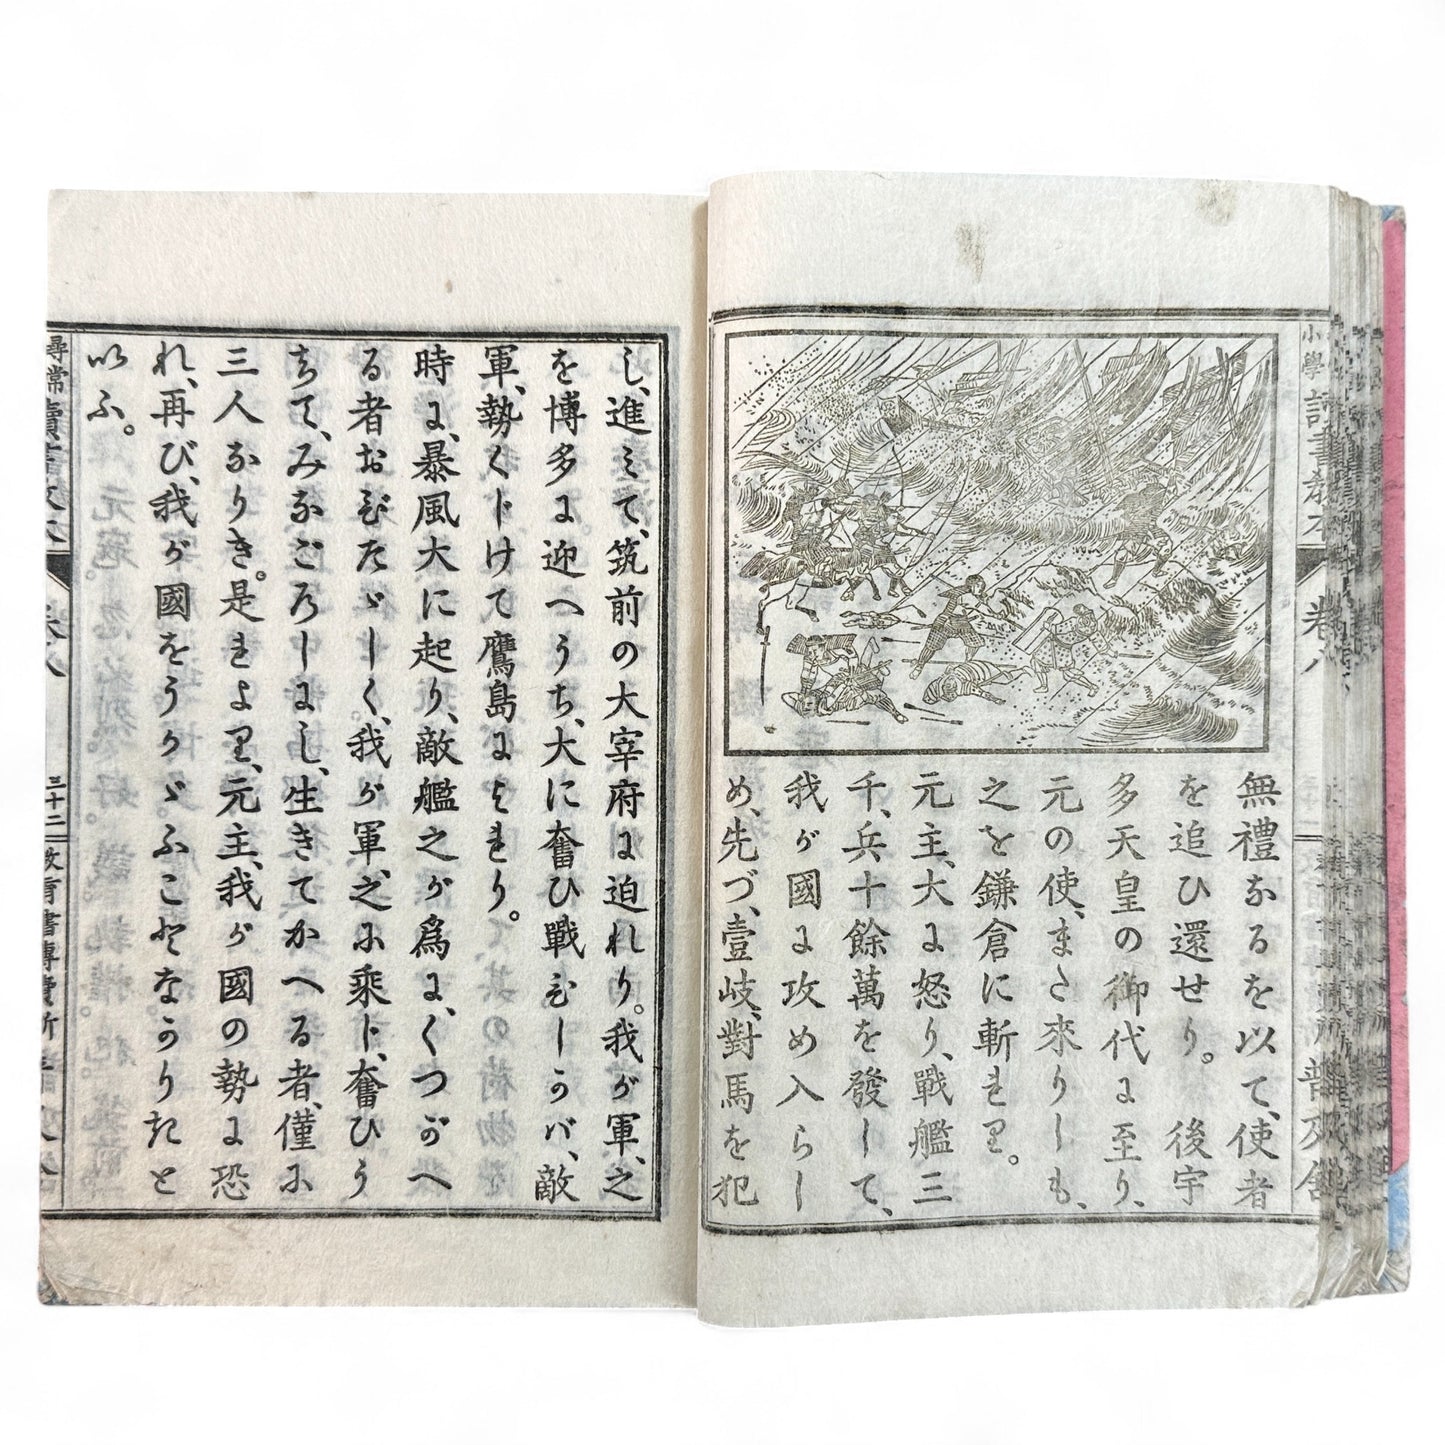 小學讀書教本
卷八
普及舎
無禮なるを以て、使者
を追ひ還せり。　後宇
多天皇の御代に至り、
元の使、また來りしも、
之を鎌倉に斬れり。
元主、大に怒り、戰艦三
千、兵十餘萬を發して、
我が國に攻め入らし
め、先づ、壹岐、對馬を犯
し、進みて、筑前の大宰府に迫れり。我が軍、之
を博多に迎へうち、大に奮ひ戰ひしかバ、敵
軍、勢くじけて鷹島によれり。
時に、暴風大に起り、敵艦之が爲に、くつがへ
る者おびたゞしく、我が軍、之に乘じ、奮ひう
ちて、みなごろしにし、生きてかへる者、僅に
三人なりき。是れより、元主、我が國の勢に恐
れ、再び、我が國をうかゞふことなかりきと
いふ。
尋常讀書教本
卷八
三十二
教育書專賣所